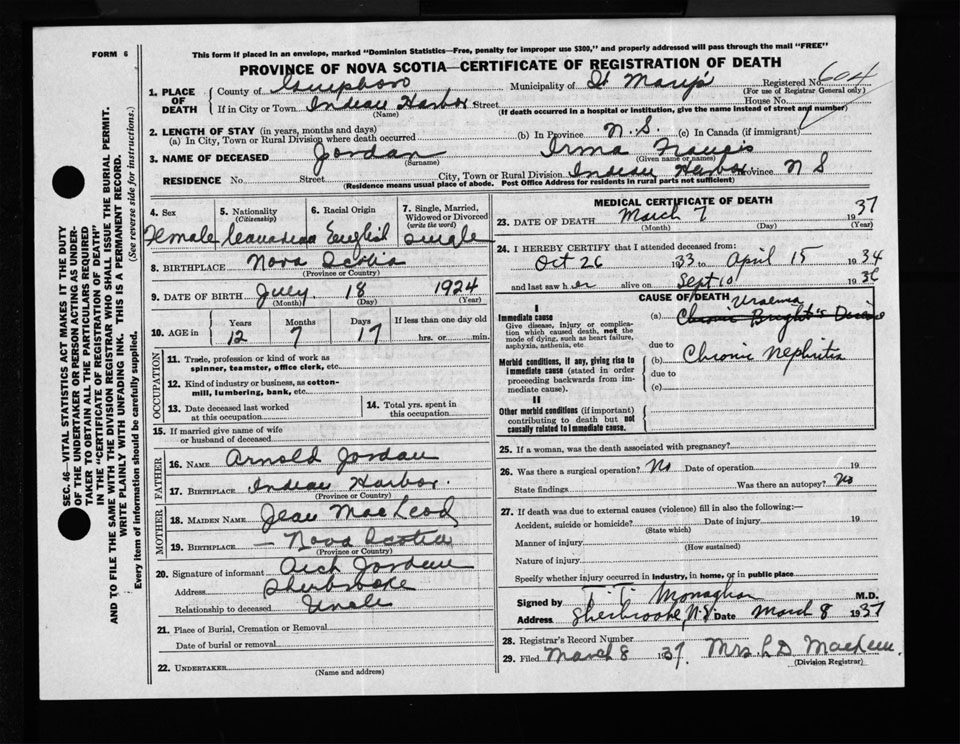 FORM 6
This form if placed in an envelope, marked "Dominion Statistics—Free, penalty for improper use $300," and properly addressed will pass through the mail "FREE"
PROVINCE OF NOVA SCOTIA—CERTIFICATE OF REGISTRATION OF DEATH
SEC. 46—VITAL STATISTICS ACT MAKES IT THE DUTY
OF THE UNDERTAKER OR PERSON ACTING AS UNDER-
TAKER TO OBTAIN ALL THE PARTICULARS REQUIRED
IN THE "CERTIFICATE OF REGISTRATION OF DEATH"
AND TO FILE THE SAME WITH THE DIVISION REGISTRAR WHO SHALL ISSUE THE BURIAL PERMIT.
WRITE PLAINLY WITH UNFADING INK. THIS IS A PERMANENT RECORD.
Every item of information should be carefully supplied. (See reverse side for instructions.)
1. PLACE OF DEATH
County of Guysboro Municipality of St Mary's Registered No. 604
(For use of Registrar General only)
If in City or Town Indian Harbor Street House No.
(Name) (If death occurred in a hospital or institution, give the name instead of street and number)
2. LENGTH OF STAY (in years, months and days)
(a) In City, Town or Rural Division where death occurred (b) In Province N.S. (c) In Canada (if immigrant)
3. NAME OF DECEASED Jordan Irma Francis
(Surname) (Given name or names)
RESIDENCE No. Street City, Town or Rural Division Indian Harbor Province N S
(Residence means usual place of abode. Post Office Address for residents in rural parts not sufficient)
4. Sex 5. Nationality (Citizenship) 6. Racial Origin 7. Single, Married, Widowed or Divorced (write the word)
Female Canadian English single
8. BIRTHPLACE Nova Scotia
(Province or Country)
9. DATE OF BIRTH July 18 1924
(Month) (Day) (Year)
10. AGE in Years Months Days If less than one day old
12 7 17 hrs. or min.
OCCUPATION
11. Trade, profession or kind of work as
spinner, teamster, office clerk, etc.
12. Kind of industry or business, as cotton-
mill, lumbering, bank, etc.
13. Date deceased last worked
at this occupation
14. Total yrs. spent in
this occupation
15. If married give name of wife
or husband of deceased
FATHER
16. NAME Arnold Jordan
17. BIRTHPLACE Indian Harbor.
(Province or Country)
MOTHER
18. MAIDEN NAME Jean MacLeod
19. BIRTHPLACE — Nova Scotia
(Province or Country)
20. Signature of informant Arch Jordan
Address Sherbrooke
Relationship to deceased Uncle
21. Place of Burial, Cremation or Removal
Date of burial or removal
22. UNDERTAKER
(Name and address)
MEDICAL CERTIFICATE OF DEATH
23. DATE OF DEATH March 7 1937
(Month) (Day) (Year)
24. I HEREBY CERTIFY that I attended deceased from:
Oct 26 1933 to April 15 1934
and last saw her alive on Sept 10 193
CAUSE OF DEATH
I
Immediate cause
Give disease, injury or complica-
tion which caused death, not the
mode of dying, such as heart failure,
asphyxia, asthenia, etc.
(a) Uraemia
Chronic Bright's Disease
due to
Morbid conditions, if any, giving rise to
immediate cause (stated in order
proceeding backwards from im-
mediate cause).
(b) Chronic Nephritis
due to
(c)
II
Other morbid conditions (if important)
contributing to death but not
causally related to immediate cause.
25. If a woman, was the death associated with pregnancy?
26. Was there a surgical operation? No Date of operation 19
State findings Was there an autopsy? No
27. If death was due to external causes (violence) fill in also the following:—
Accident, suicide or homicide? Date of injury 19
(State which)
Manner of injury
(How sustained)
Nature of injury
Specify whether injury occurred in industry, in home, or in public place
Signed by T. Monaghan M.D.
Address Sherbrooke, N.S. Date March 8 1937
28. Registrar's Record Number
29. Filed March 8 1937. Mrs. L D
(Division Registrar)